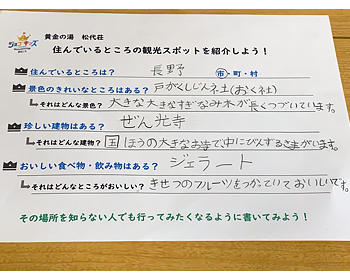 黄金の湯 松代荘
住んでいるところの観光スポットを紹介しよう！
住んでいるところは？ 長野 市・町・村
景色のきれいなところはある？ 戸がくしじん社(おく社)
それはどんな景色？ 大きな大きなすぎなみ木が長くつづいています。
珍しい建物はある？ ぜん光寺
それはどんな建物？ 国ほうの大きなお寺で中にびんずるさまがいます。
おいしい食べ物・飲み物はある？ ジェラート
それはどんなところがおいしい？ きせつのフルーツをつかっていておいしいです。
その場所を知らない人でも行ってみたくなるように書いてみよう！